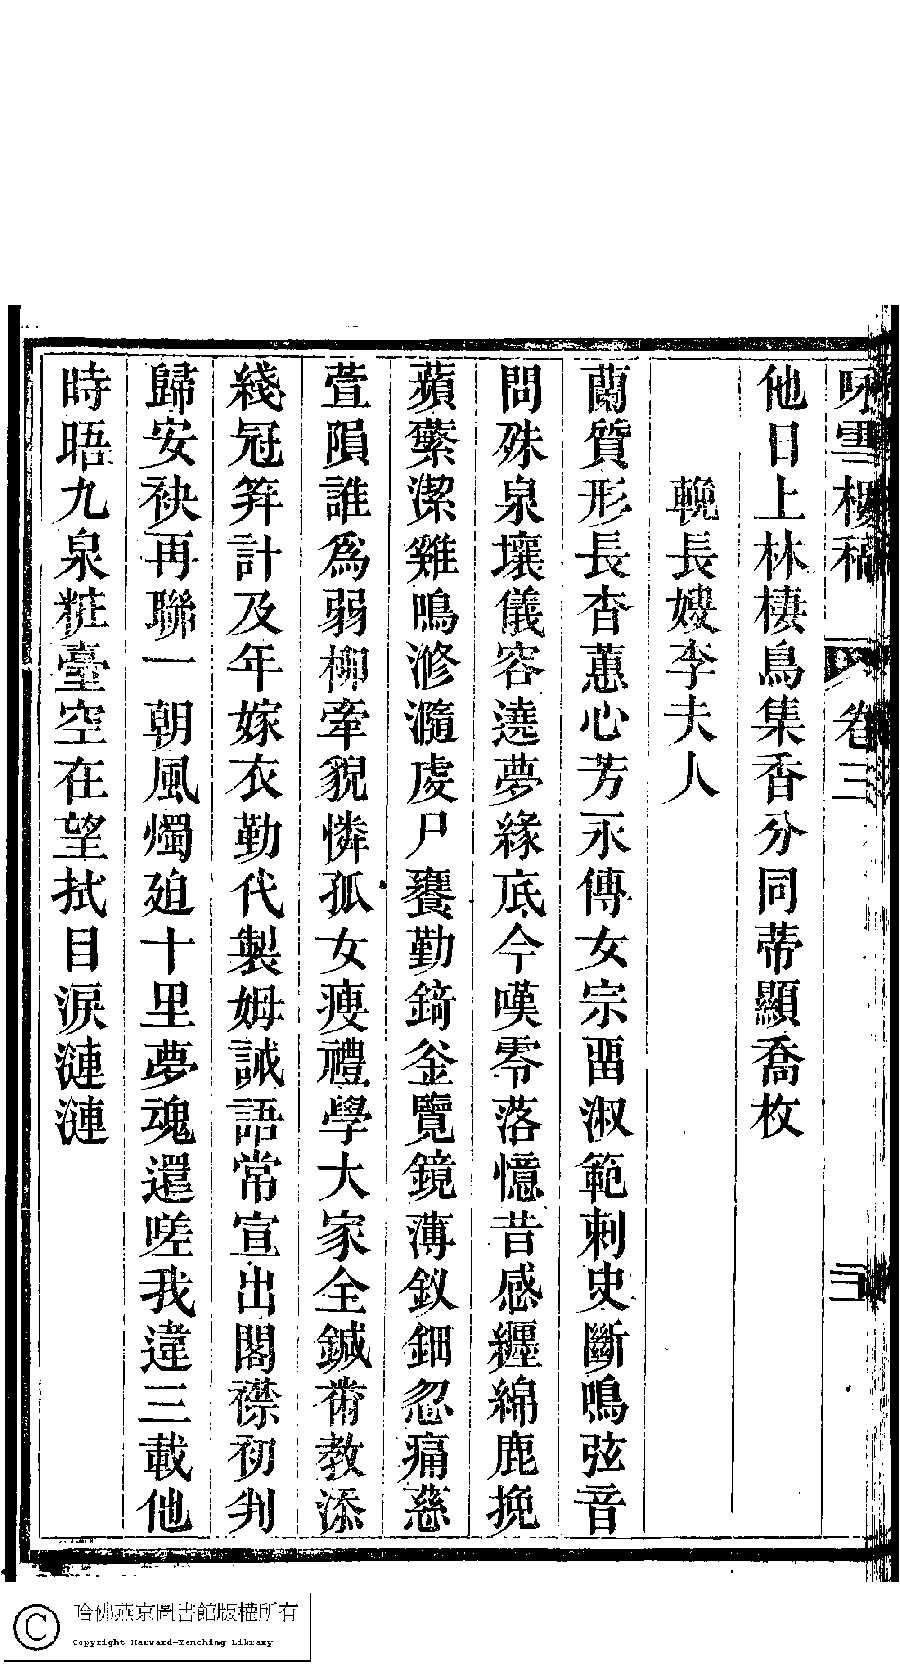 咏雪樓稿 卷三 三
他日上林棲鳥集香分同蒂顯喬枚
輓長嫂李夫人
蘭質形長杳蕙心芳永傳女宗畱淑範刺史斷鳴弦音
問殊泉壤儀容遶夢緣底今嘆零落憶昔感纏綿鹿挽
蘋蘩潔雞鳴滫瀡虔尸饔勤錡釜覽鏡薄釵鈿忽痛慈
萱隕誰為弱柳牽貌憐孤女瘦禮學大家全鍼黹教添
綫冠筓計及年嫁衣勤代製姆誡語常宣出閣襟初判
歸安袂再聯一朝風燭廹十里夢魂還嗟我違三載他
時晤九泉糚臺空在望拭目淚漣漣
哈佛燕京圖書館版權所有
Copyright Harvard-Yenching Library